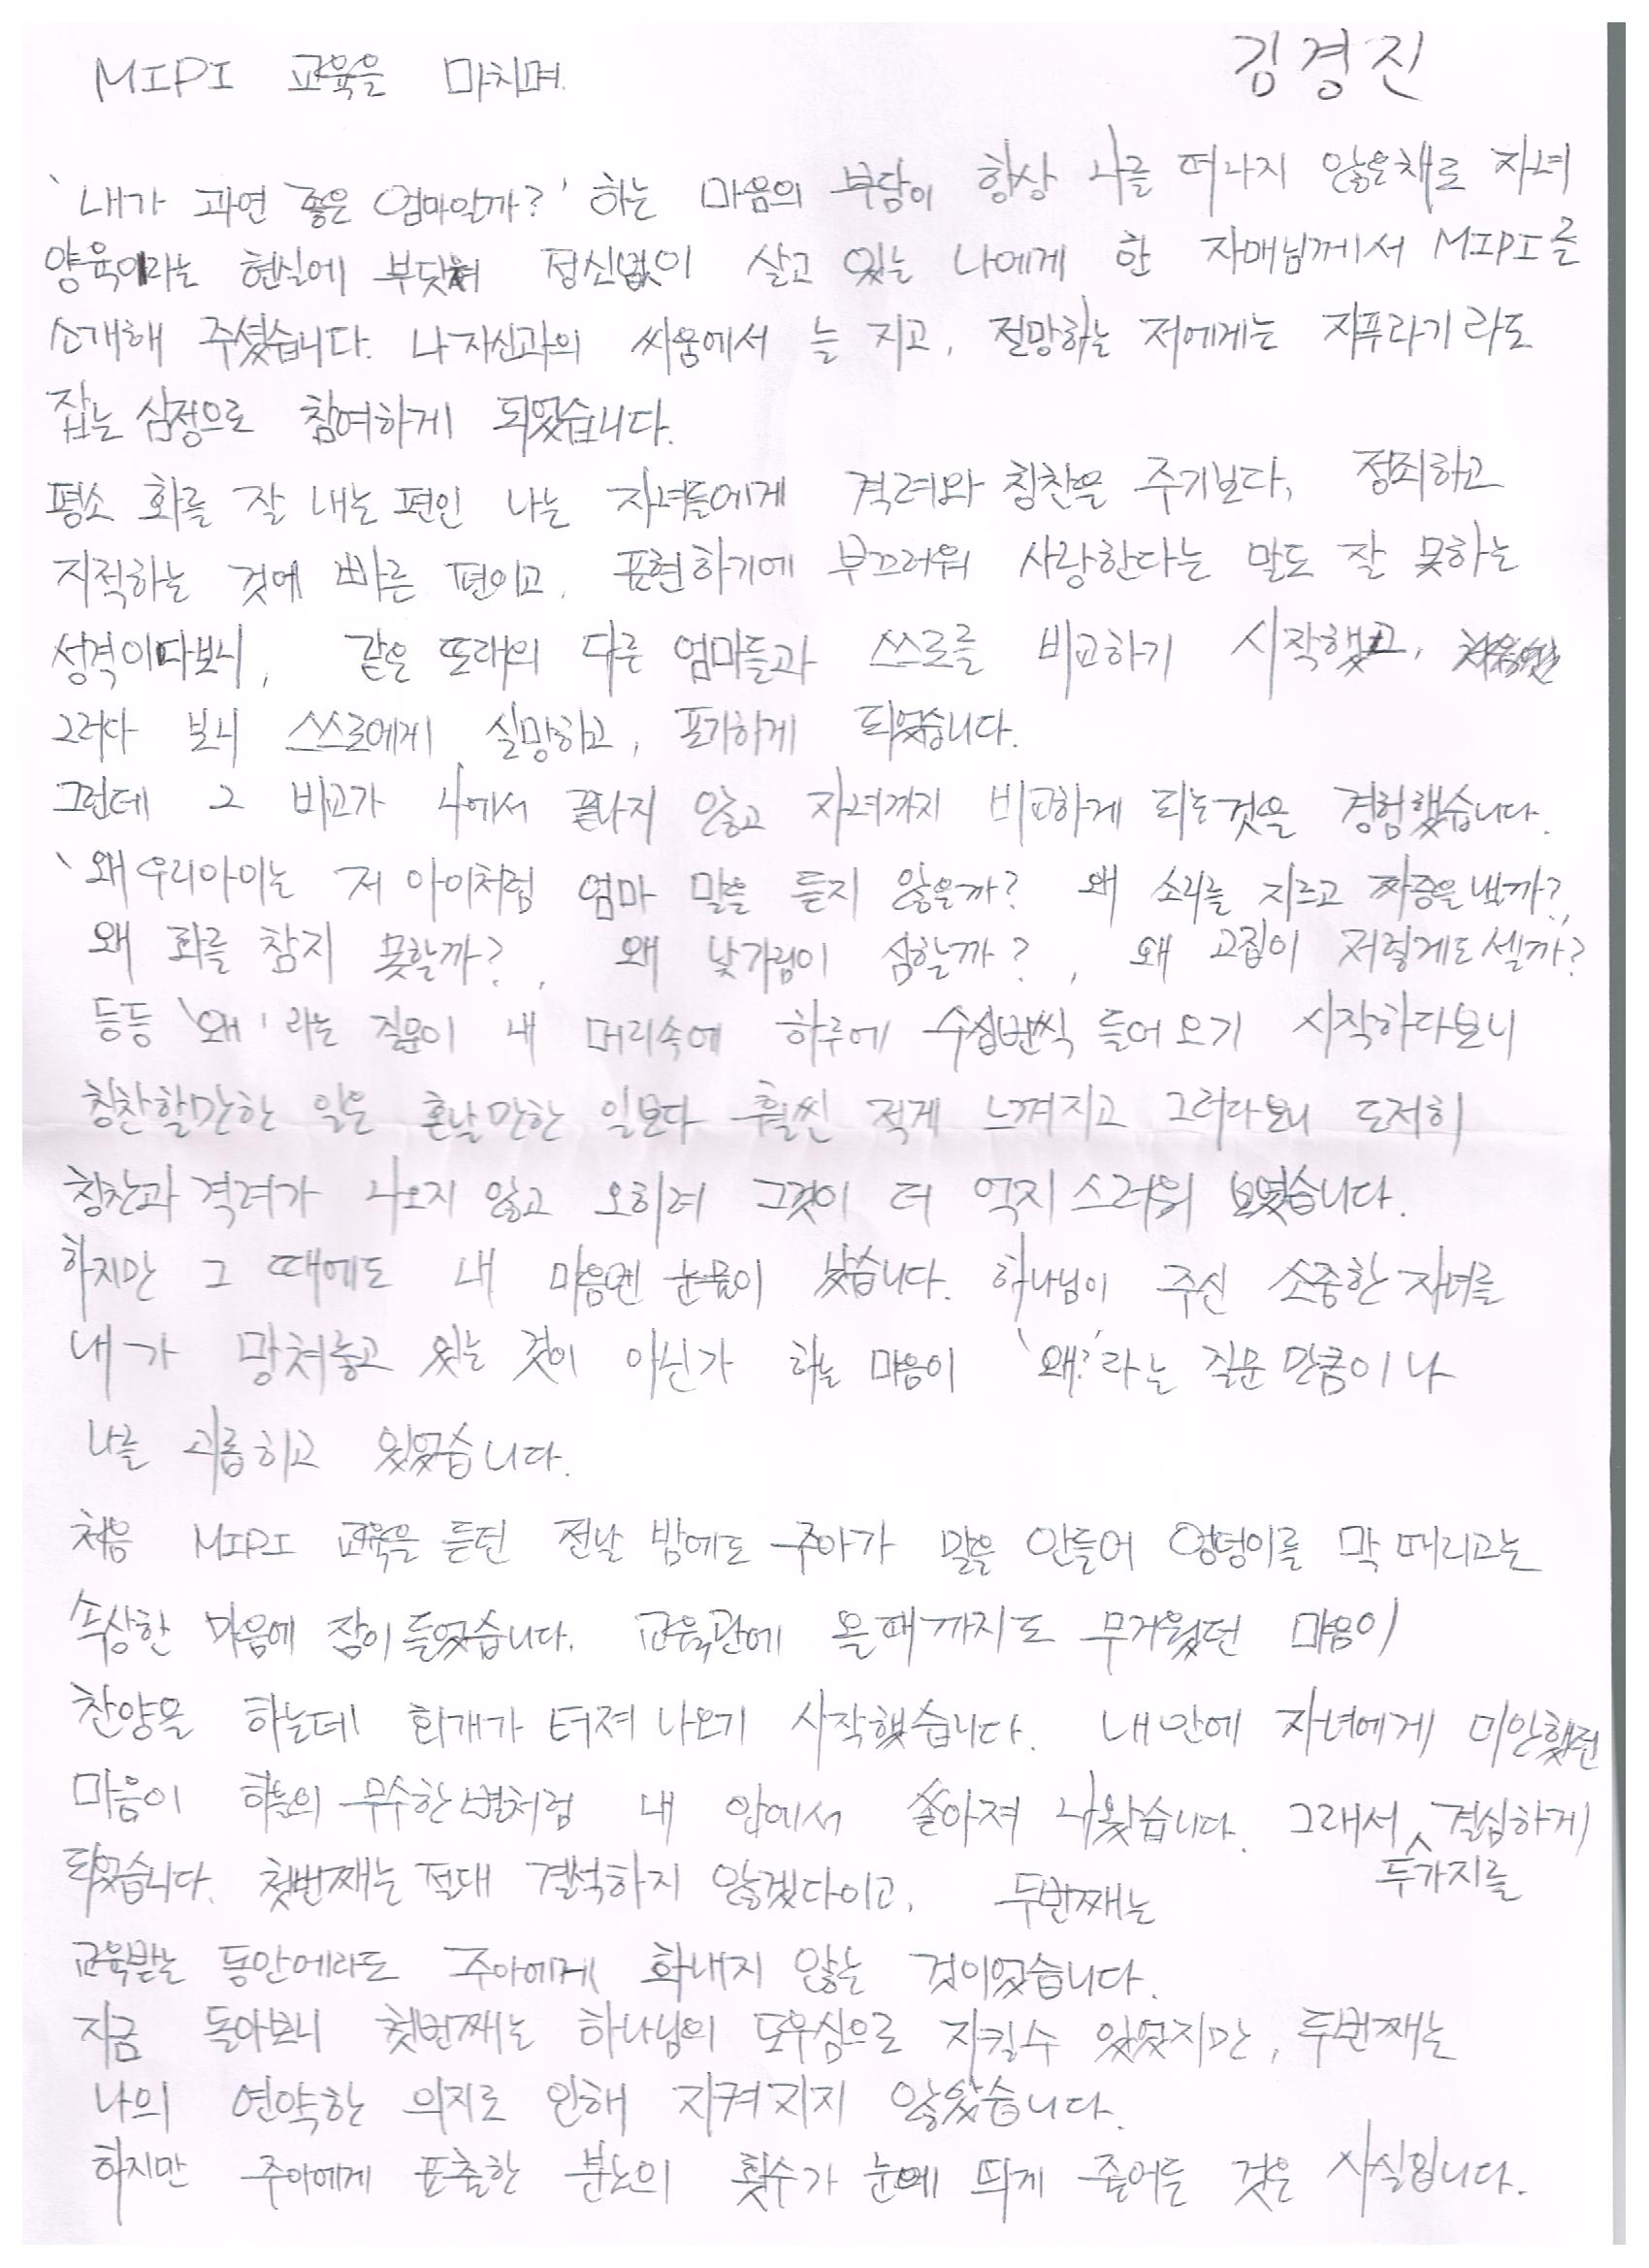 MIPI 교육을 마치며. 김경진
'내가 과연 좋은 엄마일까?' 하는 마음의 부담이 항상 나를 떠나지 않은채로 자녀
양육이라는 현실에 부닷혀 정신없이 살고 있는 나에게 한 자매님께서 MIPI를
소개해 주셨습니다. 나 자신과의 싸움에서 늘 지고, 절망하는 저에게는 지푸라기라도
잡는 심정으로 참여하게 되었습니다.
평소 화를 잘 내는 편인 나는 자녀들에게 격려와 칭찬을 주기보다, 정죄하고
지적하는 것에 빠른 편이고, 표현하기에 부끄러워 사랑한다는 말도 잘 못하는
성격이다보니, 같은 또래의 다른 엄마들과 스스로를 비교하기 시작했고,
그러다 보니 스스로에게 실망하고, 포기하게 되었습니다.
그런데 그 비교가 나에서 끝나지 않고 자녀까지 비교하게 되는것을 경험했습니다.
'왜 우리아이는 저 아이처럼 엄마 말을 듣지 않을까? 왜 소리를 지르고 짜증을 낼까?,
왜 화를 참지 못할까?, 왜 낯가림이 심할까?, 왜 고집이 저렇게도 셀까?
등등 '왜' 라는 질문이 내 머리속에 하루에 수십번씩 들어오기 시작하다보니
칭찬할만한 일은 혼날만한 일보다 훨씬 적게 느껴지고 그러다보니 도저히
칭찬과 격려가 나오지 않고 오히려 그것이 더 억지스러워 보였습니다.
하지만 그 때에도 내 마음엔 눈물이 났습니다. 하나님이 주신 소중한 자녀를
내가 망쳐놓고 있는 것이 아닌가 하는 마음이 '왜?'라는 질문 만큼이나
나를 괴롭히고 있었습니다.
처음 MIPI 교육을 듣던 전날 밤에도 주아가 말을 안들어 엉덩이를 막 때리고는
속상한 마음에 잠이 들었습니다. 교육관에 올때까지도 무거웠던 마음이
찬양을 하는데 회개가 터져 나오기 시작했습니다. 내안에 자녀에게 미안했던
마음이 하늘의 무수한 별처럼 내 안에서 쏟아져 나왔습니다. 그래서 두가지를 결심하게
되었습니다. 첫번째는 절대 결석하지 않겠다이고, 두번째는
교육받는 동안에라도 주아에게 화내지 않는 것이었습니다.
지금 돌아보니 첫번째는 하나님의 도우심으로 지킬수 있었지만, 두번째는
나의 연약한 의지로 인해 지켜지지 않았습니다.
하지만 주아에게 표출한 분노의 횟수가 눈에 띄게 줄어든 것은 사실입니다.